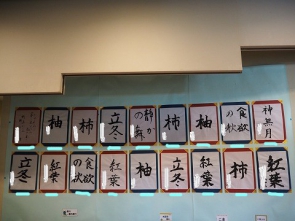 神無月
食欲
の秋
柚
柿
静か
の海
立冬
柿
柚
紅葉
柿
紅葉
立冬
柚
紅葉
食欲
の秋
紅葉
立冬